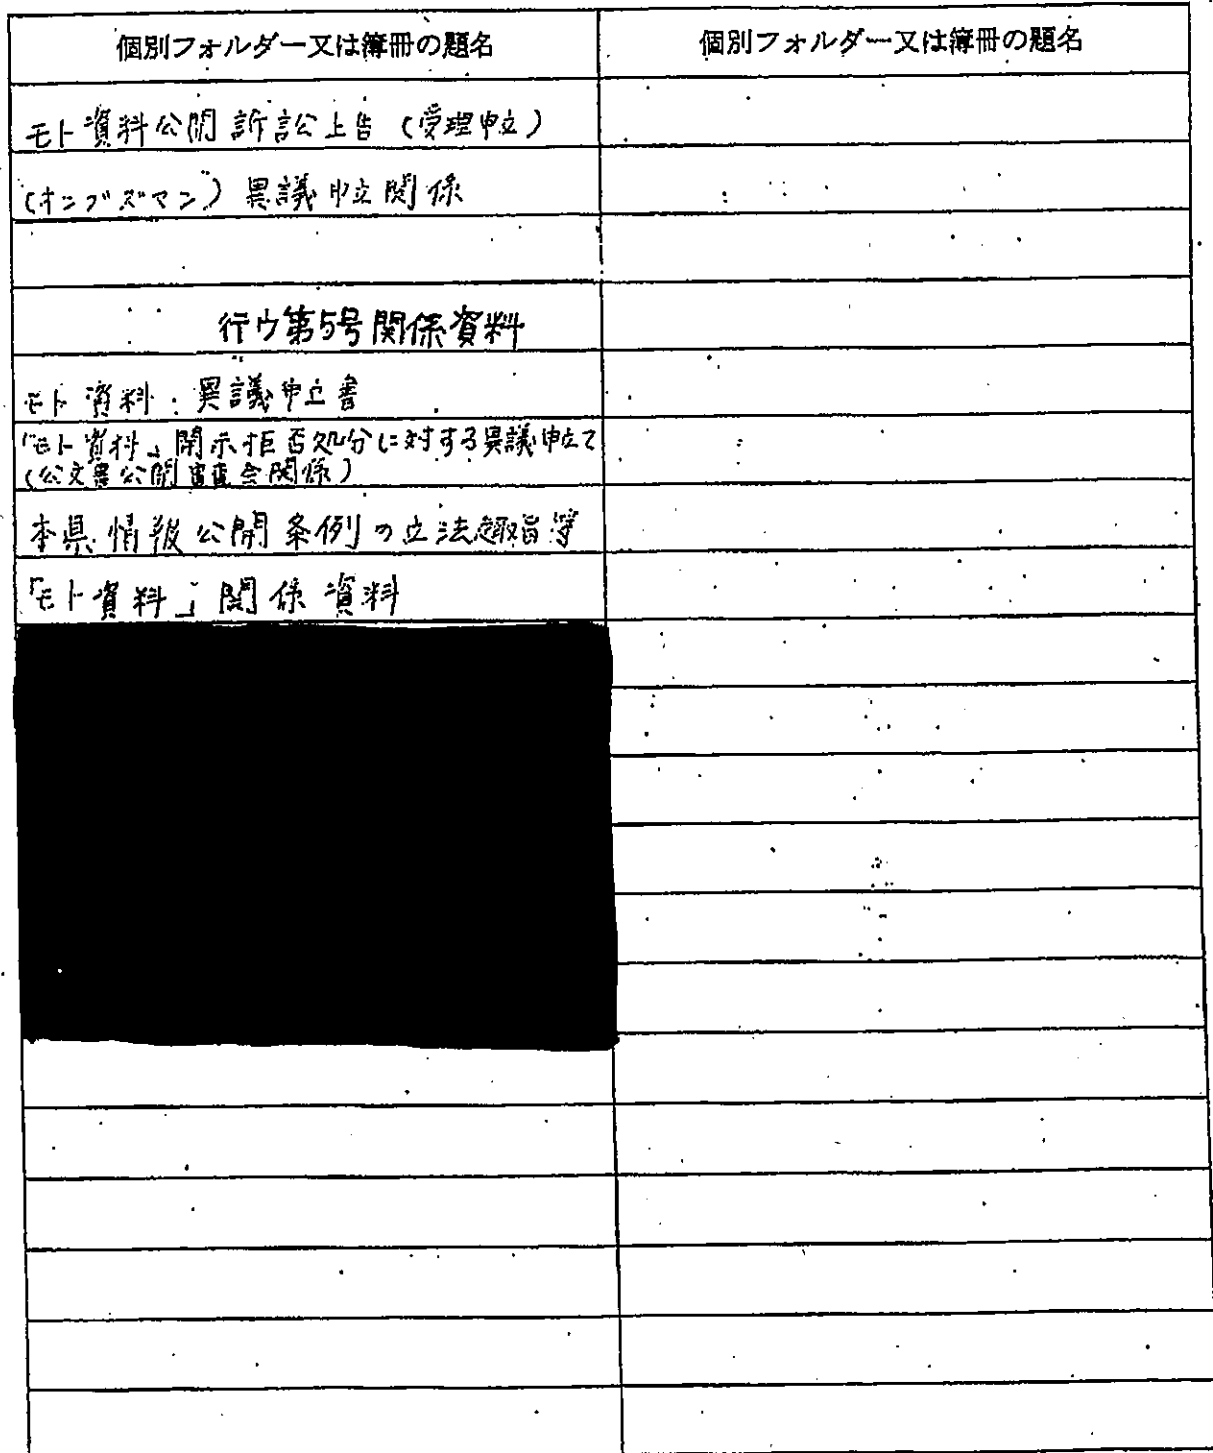 個別フォルダー又は簿冊の題名
個別フォルダー又は簿冊の題名
モト資料公開訴訟上告(受理申立)
(オンブズマン)異議申立関係
行ウ第5号関係資料
モト資料・異議申立書
「モト資料」開示拒否処分に対する異議申立て
(公文書公開審査会関係)
本県情報公開条例の立法趣旨等
「モト資料」関係資料